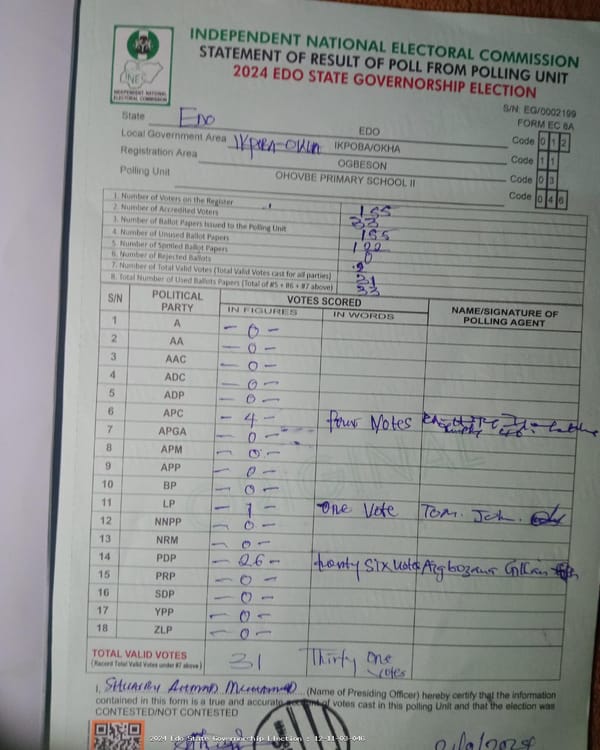 INDEPENDENT NATIONAL ELECTORAL COMMISSION
STATEMENT OF RESULT OF POLL FROM POLLING UNIT
2024 EDO STATE GOVERNORSHIP ELECTION
INEC
INDEPENDENT NATIONAL
ELECTORAL COMMISSION
S/N: EG/0002199
FORM EC 8A
State EDO EDO Code 0 1 2
Local Government Area IKPOBA-OKHA IKPOBA/OKHA Code 1 1
Registration Area OGBESON Code 0 3
Polling Unit OHOVBE PRIMARY SCHOOL II Code 0 4 6
1. Number of Voters on the Register 155
2. Number of Accredited Voters 33
3. Number of Ballot Papers Issued to the Polling Unit 155
4. Number of Unused Ballot Papers 122
5. Number of Spoiled Ballot Papers 0
6. Number of Rejected Ballots 2
7. Number of Total Valid Votes (Total Valid Votes cast for all parties) 31
8. Total Number of Used Ballots Papers (Total of #5 + #6 + #7 above) 33
S/N POLITICAL PARTY VOTES SCORED NAME/SIGNATURE OF POLLING AGENT
IN FIGURES IN WORDS
1 A - 0 -
2 AA - 0 -
3 AAC - 0 -
4 ADC - 0 -
5 ADP - 0 -
6 APC - 4 - Four Votes
7 APGA - 0 -
8 APM - 0 -
9 APP - 0 -
10 BP - 0 -
11 LP - 1 - One Vote Tom. John.
12 NNPP - 0 -
13 NRM - 0 -
14 PDP - 26 - twenty Six Votes
15 PRP - 0 -
16 SDP - 0 -
17 YPP - 0 -
18 ZLP - 0 -
TOTAL VALID VOTES 31 Thirty One Votes
(Record Total Valid Votes under #7 above)
I, Shuaibu Ahmad Muhammad (Name of Presiding Officer) hereby certify that the information
contained in this form is a true and accurate account of votes cast in this polling Unit and that the election was
CONTESTED/NOT CONTESTED
2024 Edo State Governorship Election : 12-11-03-046
ORIGINAL